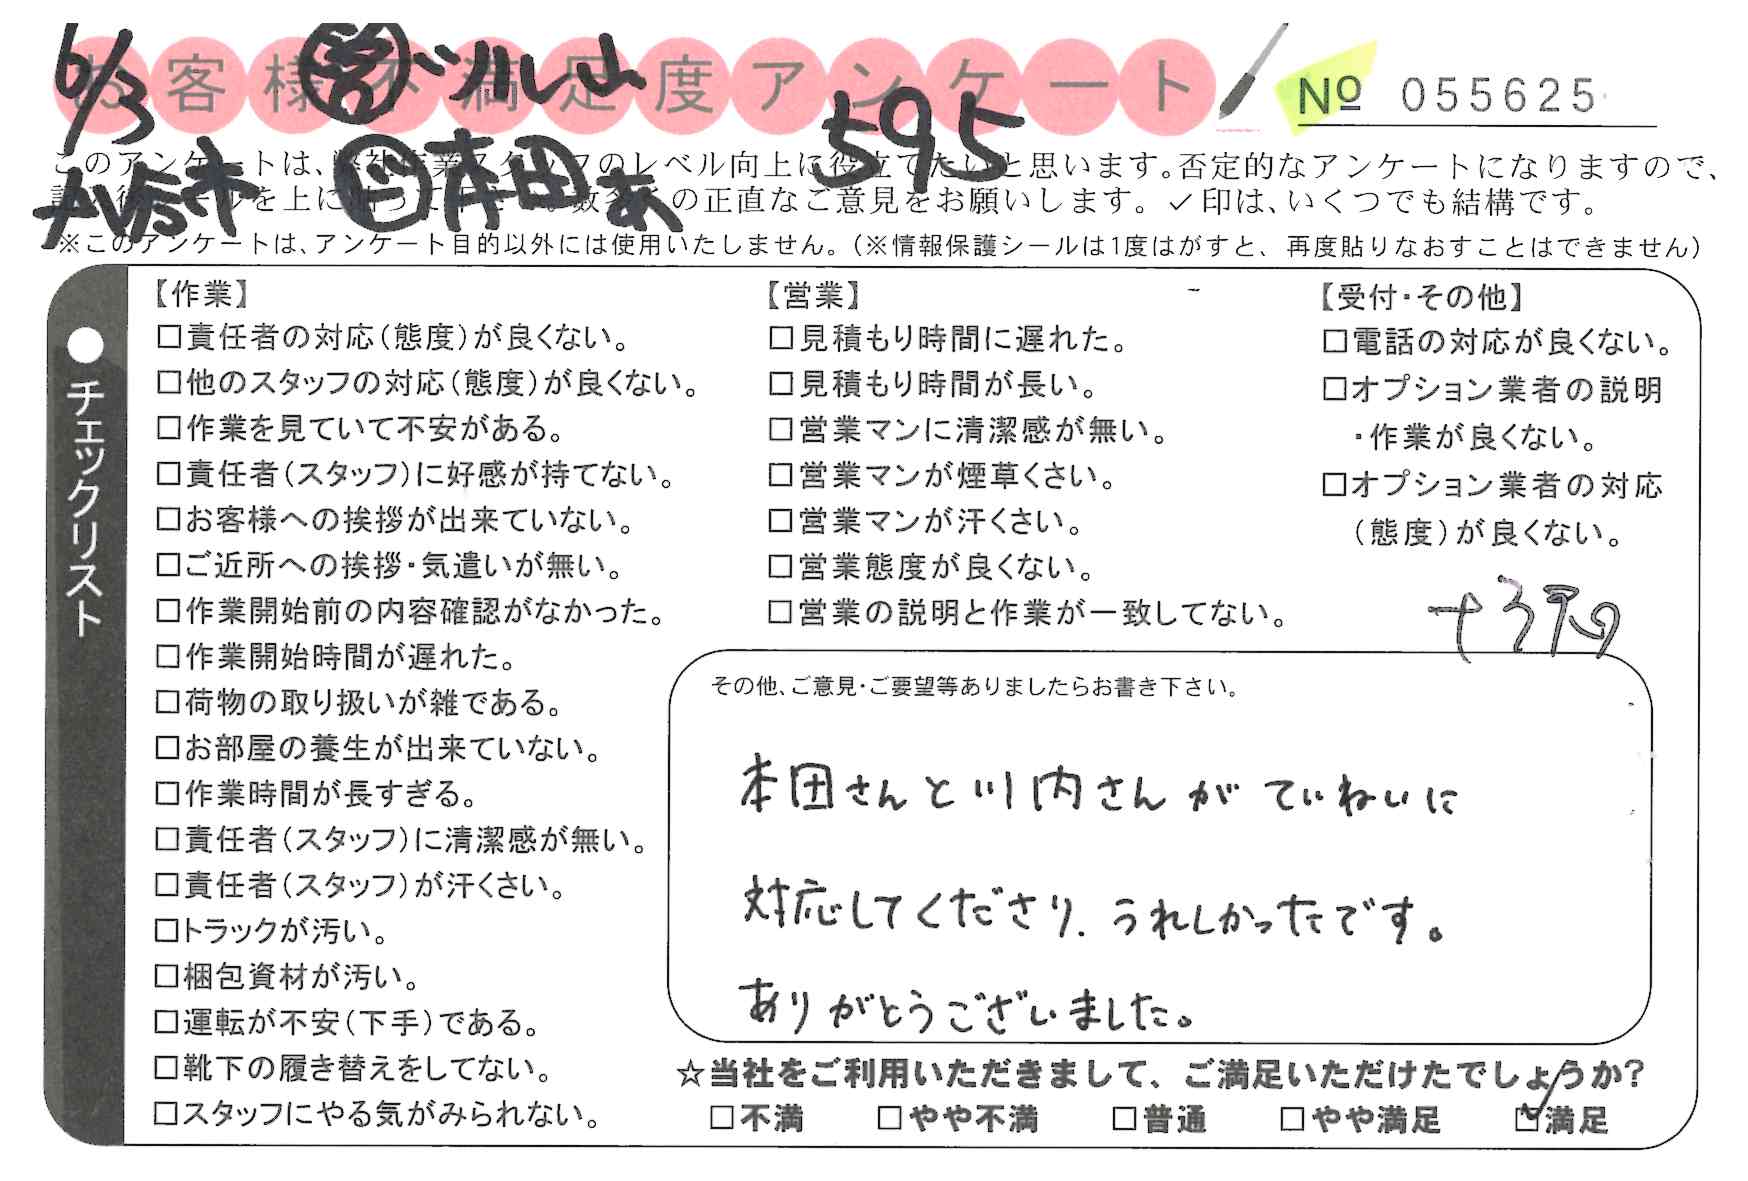 お客様不満足度アンケート
№ 055625
6/3
595
本田
このアンケートは、弊社作業スタッフのレベル向上に役立てたいと思います。否定的なアンケートになりますので、
を上に の正直なご意見をお願いします。✓印は、いくつでも結構です。
※このアンケートは、アンケート目的以外には使用いたしません。(※情報保護シールは1度はがすと、再度貼りなおすことはできません)
●チェックリスト
【作業】
□責任者の対応(態度)が良くない。
□他のスタッフの対応(態度)が良くない。
□作業を見ていて不安がある。
□責任者(スタッフ)に好感が持てない。
□お客様への挨拶が出来ていない。
□ご近所への挨拶・気遣いが無い。
□作業開始前の内容確認がなかった。
□作業開始時間が遅れた。
□荷物の取り扱いが雑である。
□お部屋の養生が出来ていない。
□作業時間が長すぎる。
□責任者(スタッフ)に清潔感が無い。
□責任者(スタッフ)が汗くさい。
□トラックが汚い。
□梱包資材が汚い。
□運転が不安(下手)である。
□靴下の履き替えをしてない。
□スタッフにやる気がみられない。
【営業】
□見積もり時間に遅れた。
□見積もり時間が長い。
□営業マンに清潔感が無い。
□営業マンが煙草くさい。
□営業マンが汗くさい。
□営業態度が良くない。
□営業の説明と作業が一致してない。
【受付・その他】
□電話の対応が良くない。
□オプション業者の説明
・作業が良くない。
□オプション業者の対応
(態度)が良くない。
その他、ご意見・ご要望等ありましたらお書き下さい。
本田さんと川内さんがていねいに
対応してくださり、うれしかったです。
ありがとうございました。
☆当社をご利用いただきまして、ご満足いただけたでしょうか?
□不満 □やや不満 □普通 □やや満足 ☑満足